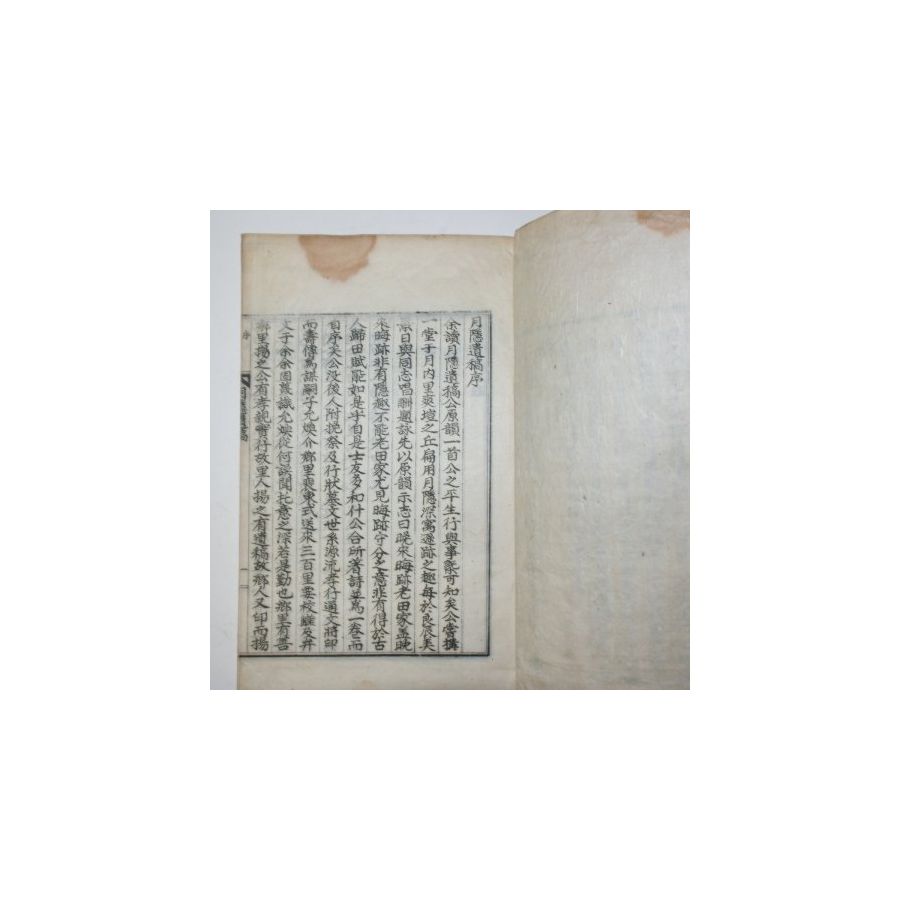 月隱遺稿序
余讀月隱遺稿公原韻一首公之平生行與事誂可知矣公嘗搆
一堂于月內里爽塏之丘扁用月隱深寓遯跡之趣每於良辰美
景日與同志唱酬題詠先以原韻示志曰晚來晦跡老田家盖晚
來晦跡非有隱趣不能老田家尤見晦跡守分之意非有得於古
人歸田賦能如是乎自是士友多和什公合所著詩並爲一卷而
自序矣公沒後人附挽祭及行狀墓文世系源流孝行通文將印
而壽傳爲謀嗣子允煥介鄉里裵東式送來三百里要校讎及弁
文于余余固蔑識允煥從何誤聞托意之深若是勤也鄉里有善
鄉里揚之公有孝親實行故里人揚之有遺稿故鄉人又印而揚
序
一